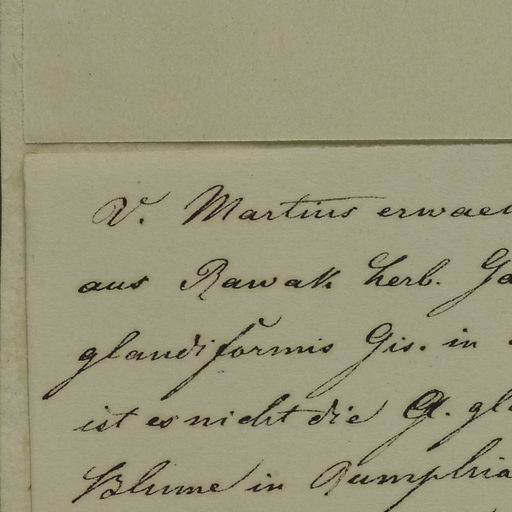 V. Martius erwaeh
aus Rawak herb. Ga
glandiformis Gis. in
ist es nicht die A. gla
Blume in Rumphia